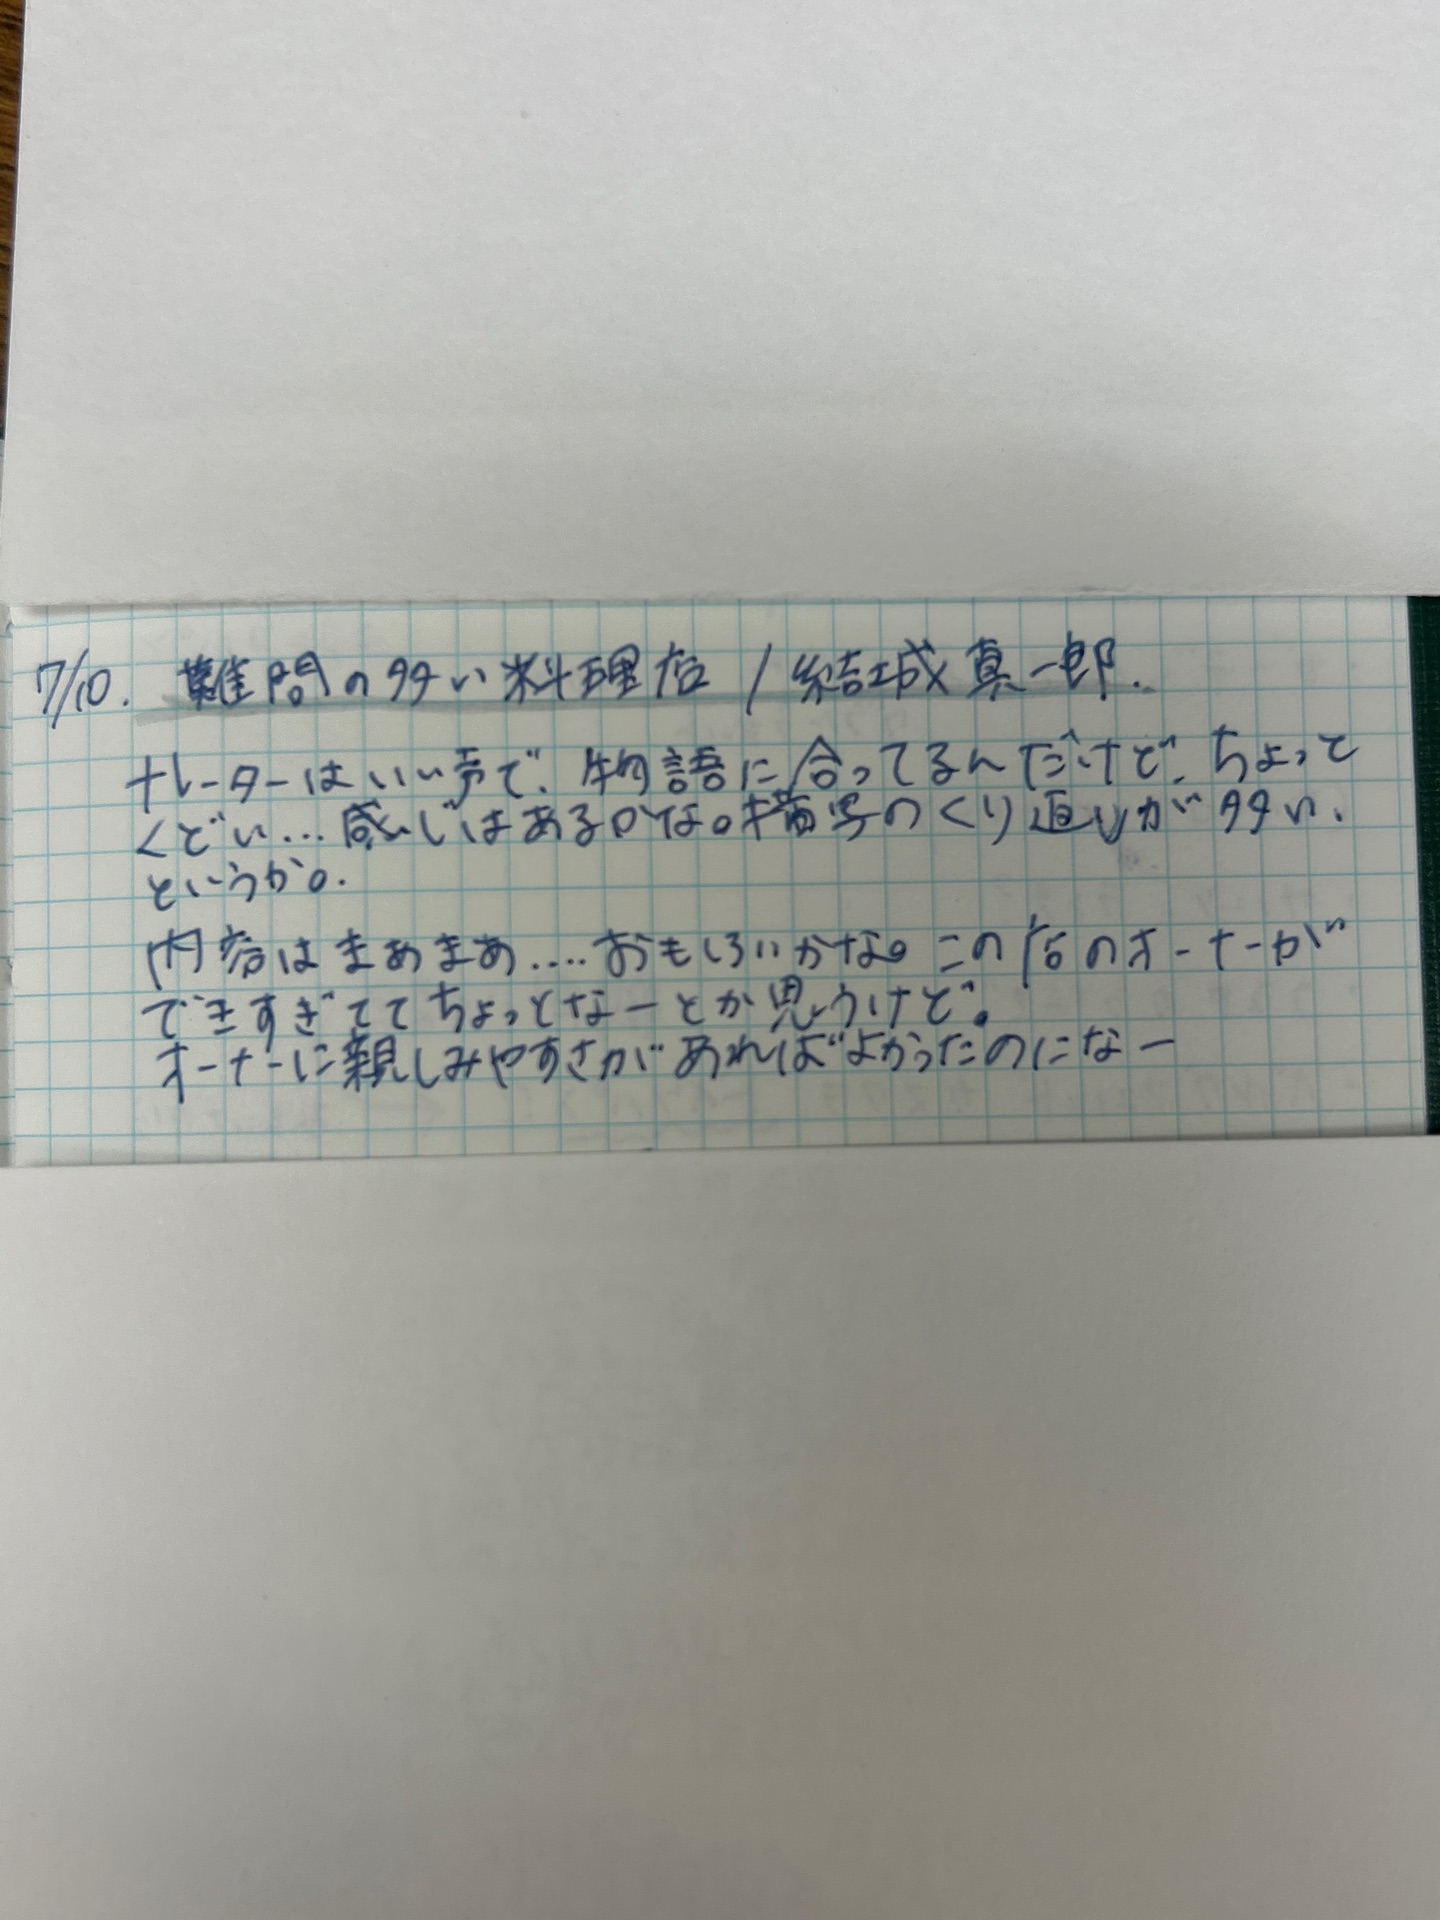 7/10. 難問の多い料理店 / 結城真一郎.
ナレーターはいい声で、物語に合ってるんだけど、ちょっと
くどい…感じはあるかな。描写のくり返しが多い、
というか。
内容はまあまあ….おもしろいかな。この店のオーナーが
できすぎててちょっとなーとか思うけど。
オーナーに親しみやすさがあればよかったのになー